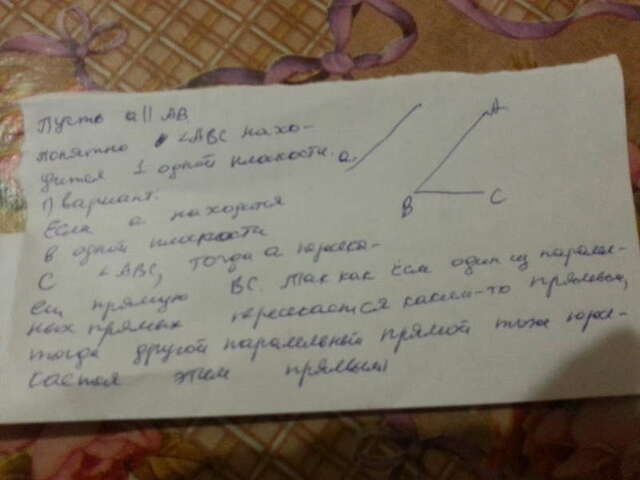 Пусть a || AB
понятно ∠ABC нахо-
дится 1 одной плоскости.
1) вариант.
Если a находится
в одной плоскости
с ∠ABC, тогда a пересе-
ет прямую BC. так как если один из паралел-
ных прямых пересекается каким-то прямым,
тогда другой паралельный прямой тоже пересе-
кается этим прямым
a
A
B
C